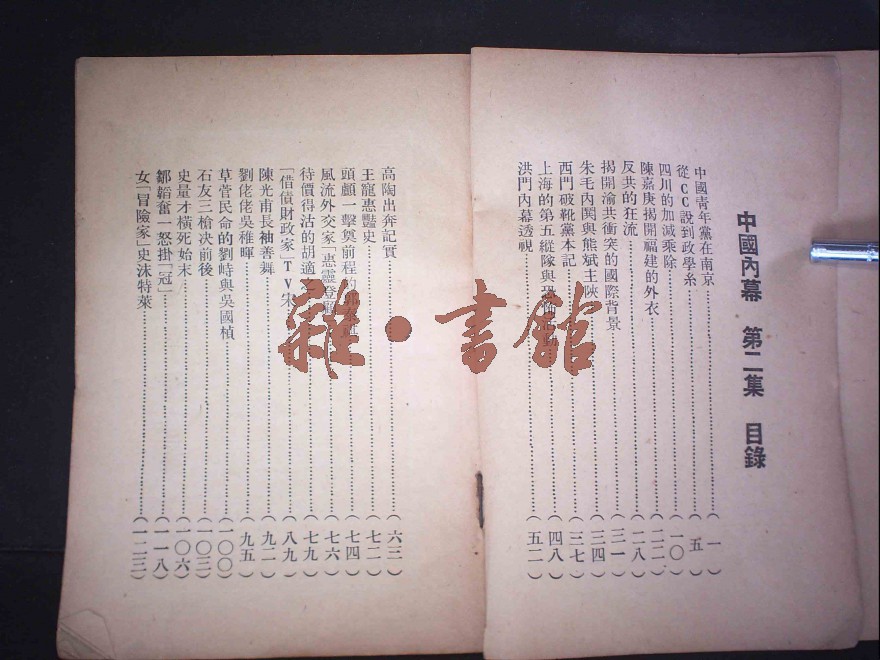 中國內幕 第二集 目錄
中國青年黨在南京……(一)
從CC說到政學系……(五)
四川的加減乘除……(一〇)
陳嘉庚揭開福建的外衣……(二二)
反共的狂流……(二八)
揭開渝共衝突的國際背景……(三一)
朱毛內鬨與熊斌主陝……(三四)
西門破靴黨本記……(三七)
上海的第五縱隊與恐怖
……(四八)
洪門內幕透視……(五二)
高陶出奔記實……(六三)
王寵惠豔史……(七二)
頭顱一擊奠前程的
……(七四)
風流外交家「惠靈登
……(七六)
待價得沽的胡適之……(七九)
「借債財政家」TV宋……(八九)
陳光甫長袖善舞……(九二)
劉佬佬吳稚暉……(九五)
草菅民命的劉峙與吳國楨……(一〇〇)
石友三槍決前後……(一〇三)
史量才橫死始末……(一〇六)
鄒韜奮一怒掛「冠」……(一一八)
女「冒險家」史沫特萊……(一二三)
雜·書館